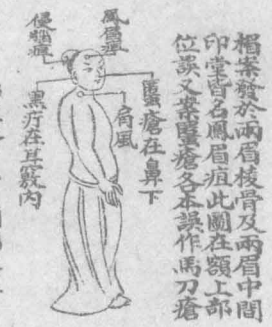 楣案發於兩眉棱骨及兩眉中間
印堂皆名鳳眉疽此圖在額上部
位誤又案䘌瘡各本誤作馬刀瘡
鳳眉疽
侵腦疽
䘌瘡在鼻下
肩風
黑疔在耳竅內